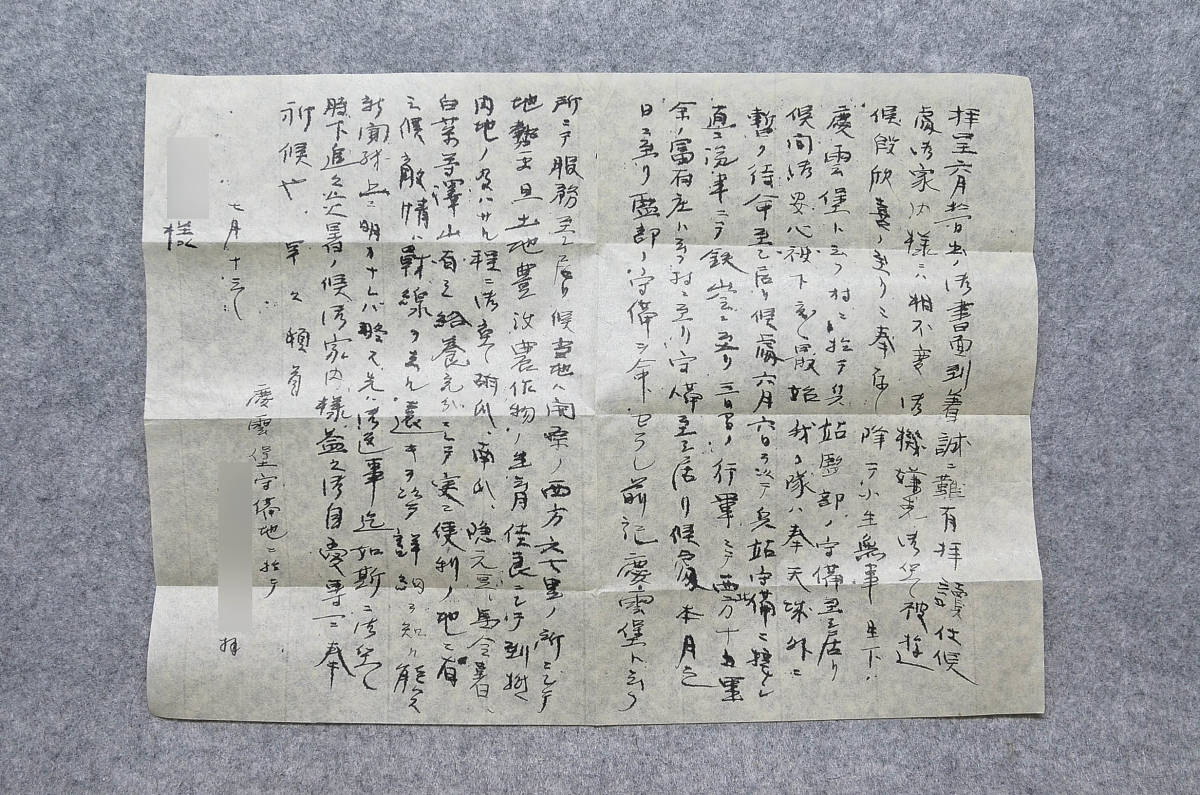 拝呈六月廿日出ノ御書面到着誠ニ難有拝讀仕候
處御家内様ニハ相不変御機嫌克御消光被遊
候段欣喜ノ至リニ奉存候降テ小生無事目下
慶雲堡ト云フ村ニ於テ兵站監部ノ守備罷在居リ
候間御安心被下度最始我ノ隊ハ奉天城外ニ
暫ク待命罷在居リ候處六月六日ヲ以テ兵站守備ニ
直ニ汽車ニテ鉄嶺ニ至リ三日ノ行軍ニテ西方十五里
余ノ富有庄ト云フ村ニ至リ守備罷在居リ候處本月
日ニ至リ監部ノ守備ヲ命セラレ前記慶雲堡ト云フ
所ニテ服務罷在居リ候当地ハ開原ノ西方六七里ノ所ニシテ
地勢平旦土地豊沃農作物ノ生育佳良ニシテ到底
内地ノ及ハサル程ニ御座候胡瓜、南瓜、隠元豆、馬令薯、
白菜等澤山有之給養充分ニシテ実ニ便利ノ地ニ有
之候敵情ハ戦線ヲ去ル遠キヲ以テ詳細ヲ知リ能ハス
新聞紙上ニ明カナレバ略ス先ハ御返事迄如斯ニ御座候
時下追々炎暑ノ候御家内様益々御自愛専一ニ奉
祈候也 早々頓首
慶雲堡守備地ニ於テ
拝
七月十三日
様